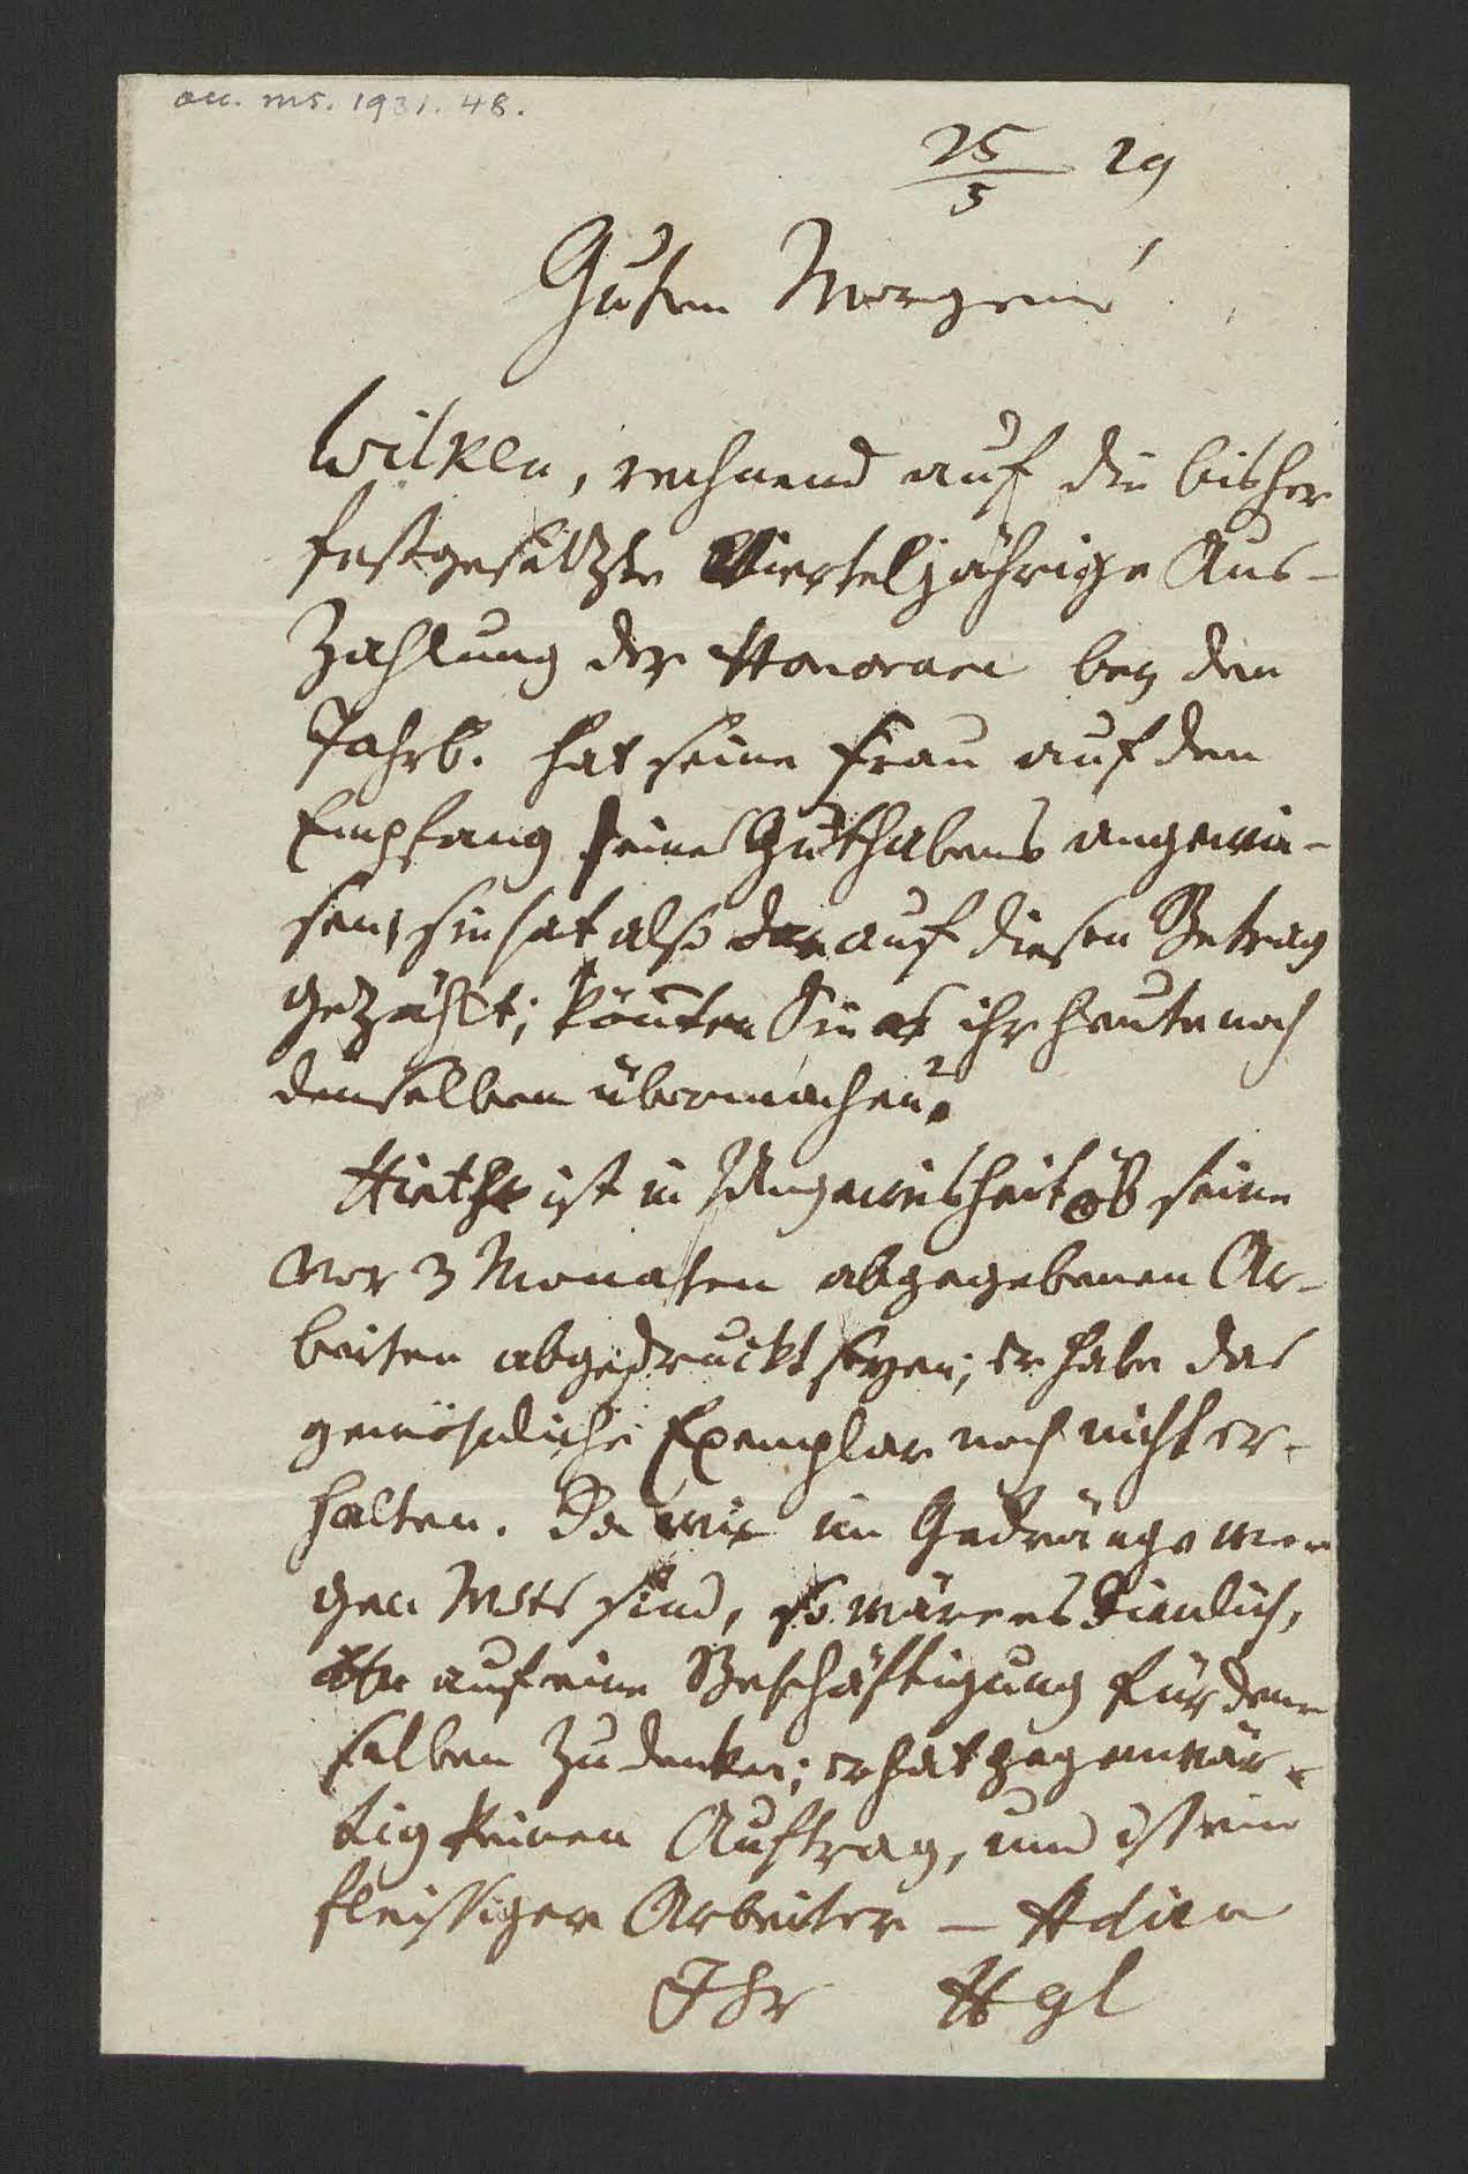 acc. ms. 1931. 48.
25/5 29
Guten Morgen!
Wilken, rechnend auf die bisher
festgesetzte Vierteljährige Aus-
zahlung der Honorare bey den
Jahrb. hat seine Frau auf den
Empfang seines Guthabens angewie-
sen, sie hat also auf diesen Betrag
gezählt; könnten Sie ihr heute noch
denselben übermachen?
Hirth ist in Ungewisheit ob seine
vor 3 Monaten abgegebenen Ar-
beiten abgedruckt seyen; er habe das
gewöhnliche Exemplar noch nicht er-
halten. Da wir im Gedränge
gen Msts sind, so wäre es dienlich,
auf eine Beschäftigung für den-
selben zu denken; er hat gegenwär-
tig keinen Auftrag, und ist ein
fleissiger Arbeiter – Adieu
Ihr Hgl